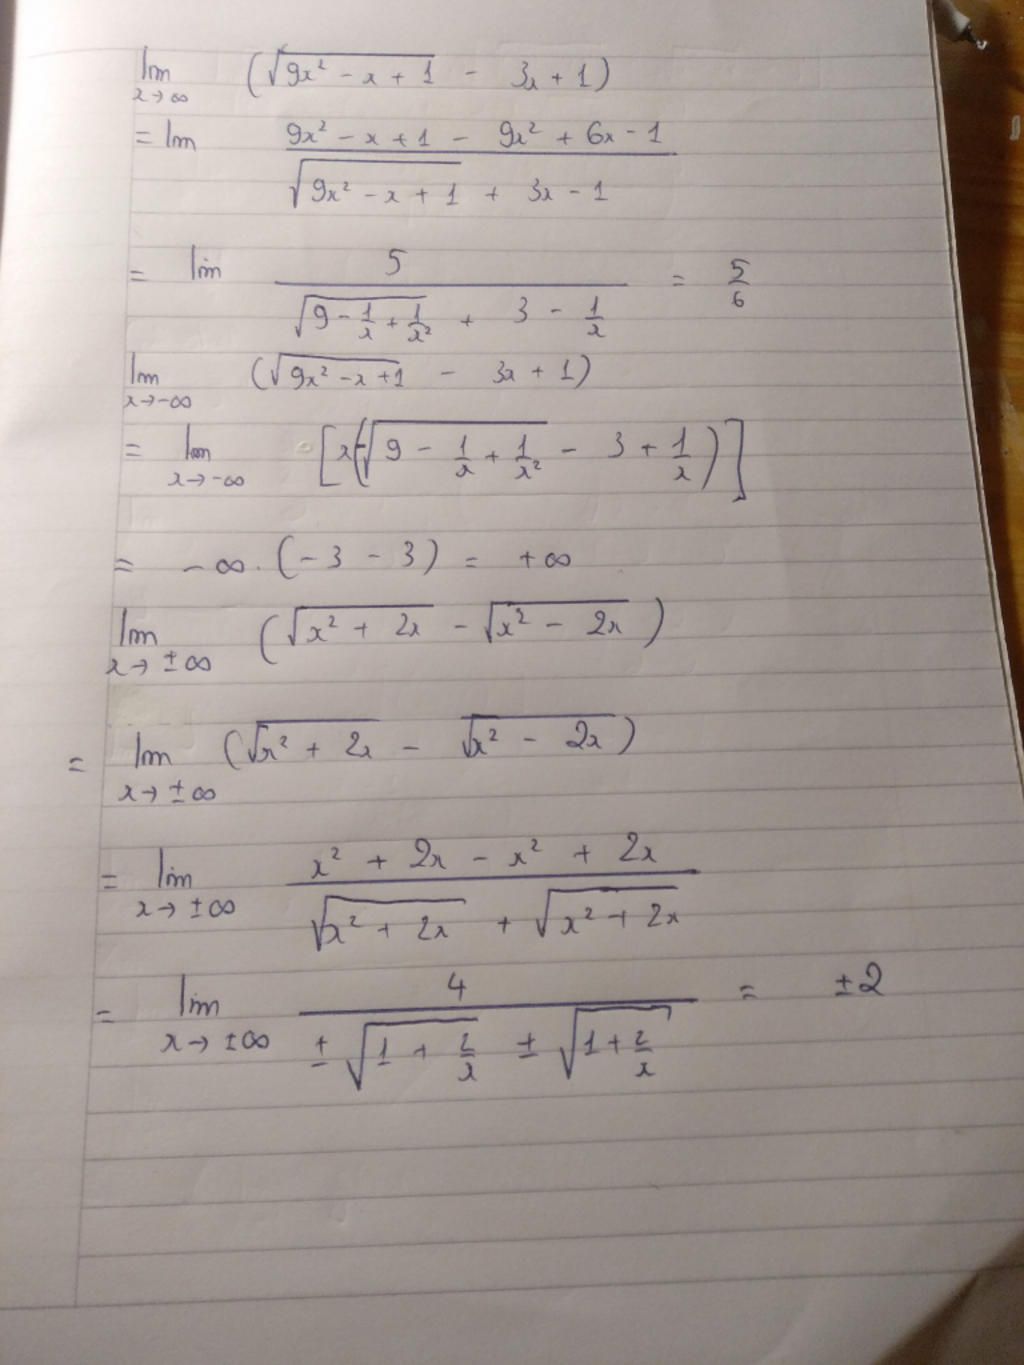 lim x→∞ (√(9x² - x + 1) - 3x + 1)
= lim (9x² - x + 1 - 9x² + 6x - 1) / (√(9x² - x + 1) + 3x - 1)
= lim 5 / (√(9 - 1/x + 1/x²) + 3 - 1/x) = 5/6
lim x→-∞ (√(9x² - x + 1) - 3x + 1)
= lim x→-∞ [x(-√(9 - 1/x + 1/x²) - 3 + 1/x)]
= -∞.(-3 - 3) = +∞
lim x→±∞ (√(x² + 2x) - √(x² - 2x))
= lim x→±∞ (√(x² + 2x) - √(x² - 2x))
= lim x→±∞ (x² + 2x - x² + 2x) / (√(x² + 2x) + √(x² + 2x))
= lim x→±∞ 4 / (±√(1 + 2/x) ± √(1 + 2/x)) = ±2